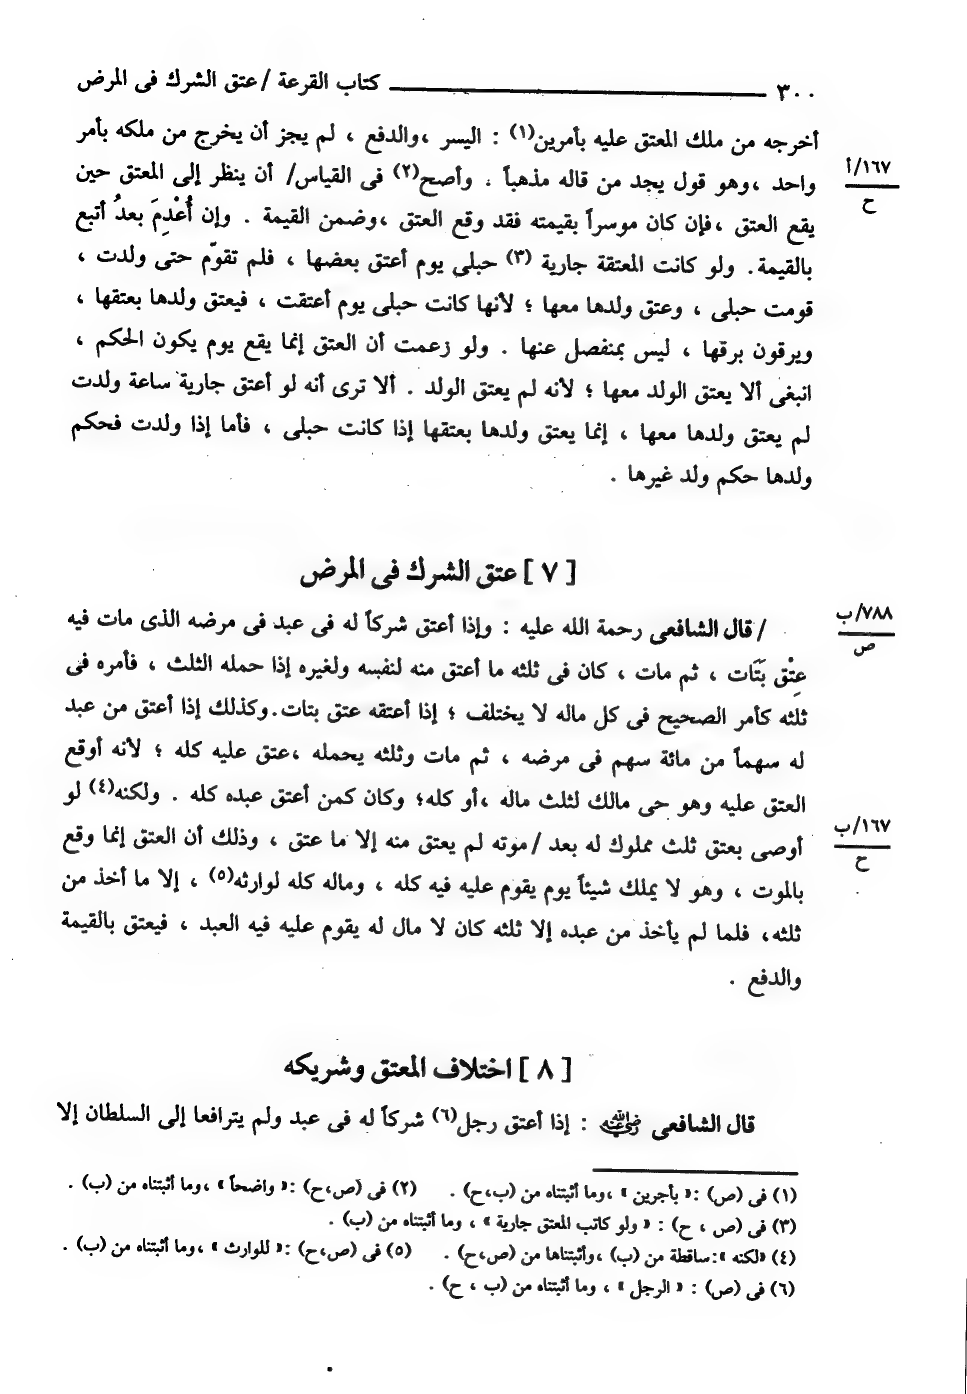 ٣٠٠ كتاب القرعة / عتق الشرك فى المرض
أخرجه من ملك المعتق عليه بأمرين(١) : اليسر ،والدفع ، لم يجز أن يخرج من ملكه بأمر
١٦٧/أ
ح
واحد ،وهو قول يجد من قاله مذهباً . وأصح(٢) فى القياس/ أن ينظر إلى المعتق حين
يقع العتق ،فإن كان موسراً بقيمته فقد وقع العتق ،وضمن القيمة . وإن أُعْدِمَ بعدُ أتبع
بالقيمة. ولو كانت المعتقة جارية (٣) حبلى يوم أعتق بعضها ، فلم تقوّم حتى ولدت ،
قومت حبلى ، وعتق ولدها معها ؛ لأنها كانت حبلى يوم أعتقت ، فيعتق ولدها بعتقها ،
ويرقون برقها ، ليس بمنفصل عنها . ولو زعمت أن العتق إنما يقع يوم يكون الحكم ،
انبغى ألا يعتق الولد معها ؛ لأنه لم يعتق الولد . ألا ترى أنه لو أعتق جارية ساعة ولدت
لم يعتق ولدها معها ، إنما يعتق ولدها بعتقها إذا كانت حبلى ، فأما إذا ولدت فحكم
ولدها حكم ولد غيرها .
[ ٧ ] عتق الشرك فى المرض
٧٨٨/ب
ص
/ قال الشافعى رحمة الله عليه : وإذا أعتق شركاً له فى عبد فى مرضه الذى مات فيه
عِتْق بَتَات ، ثم مات ، كان فى ثلثه ما أعتق منه لنفسه ولغيره إذا حمله الثلث ، فأمره فى
ثلثه كأمر الصحيح فى كل ماله لا يختلف ؛ إذا أعتقه عتق بتات.وكذلك إذا أعتق من عبد
له سهماً من مائة سهم فى مرضه ، ثم مات وثلثه يحمله ،عتق عليه كله ؛ لأنه أوقع
العتق عليه وهو حى مالك لثلث ماله ،أو كله؛ وكان كمن أعتق عبده كله . ولكنه(٤) لو
١٦٧/ب
ح
أوصى بعتق ثلث مملوك له بعد /موته لم يعتق منه إلا ما عتق ، وذلك أن العتق إنما وقع
بالموت ، وهو لا يملك شيئاً يوم يقوم عليه فيه كله ، وماله كله لوارثه(٥) ، إلا ما أخذ من
ثلثه، فلما لم يأخذ من عبده إلا ثلثه كان لا مال له يقوم عليه فيه العبد ، فيعتق بالقيمة
والدفع .
[ ٨ ] اختلاف المعتق وشريكه
قال الشافعى رضي الله عنه : إذا أعتق رجل(٦) شركاً له فى عبد ولم يترافعا إلى السلطان إلا
(١) فى (ص) :« بأجرين » ،وما أثبتناه من (ب،ح) . (٢) فى (ص،ح) :« واضحاً » ،وما أثبتناه من (ب) .
(٣) فى (ص ، ح) : « ولو كاتب المعتق جارية » ، وما أثبتناه من (ب) .
(٤) «لكنه »:ساقطة من (ب) ،وأثبتناها من (ص،ح) . (٥) فى (ص،ح) :« للوارث » ،وما أثبتناه من (ب) .
(٦) فى (ص) : « الرجل » ، وما أثبتناه من (ب ، ح) .